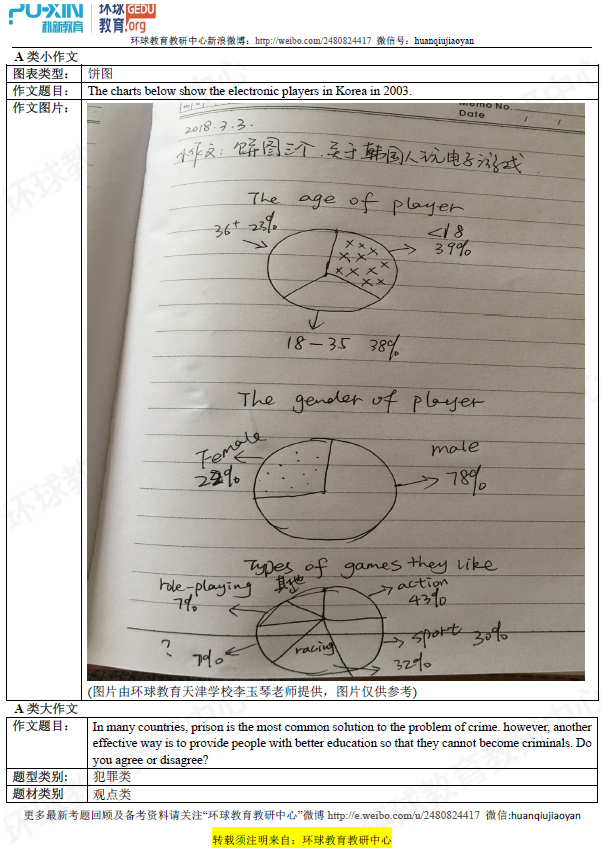 PU-XIN 环球 GEDU
朴新教育 教育.org
环球教育教研中心新浪微博：http://weibo.com/2480824417 微信号：huanqiujiaoyan
A 类小作文
图表类型： 饼图
作文题目： The charts below show the electronic players in Korea in 2003.
作文图片：
Memo No.
Date / /
2018.3.3.
小作文：饼图三个，关于韩国人玩电子游戏
The age of player
36+ 23%
<18
39%
18-35 38%
The gender of player
Female
22%
male
78%
Types of games they like
role-playing
7%
其他
action
43%
?
7%
racing
sport 30%
32%
(图片由环球教育天津学校李玉琴老师提供，图片仅供参考)
A 类大作文
作文题目： In many countries, prison is the most common solution to the problem of crime. however, another
effective way is to provide people with better education so that they cannot become criminals. Do
you agree or disagree?
题型类别: 犯罪类
题材类别 观点类
更多最新考题回顾及备考资料请关注“环球教育教研中心”微博 http://e.weibo.com/u/2480824417 微信:huanqiujiaoyan
转载须注明来自：环球教育教研中心